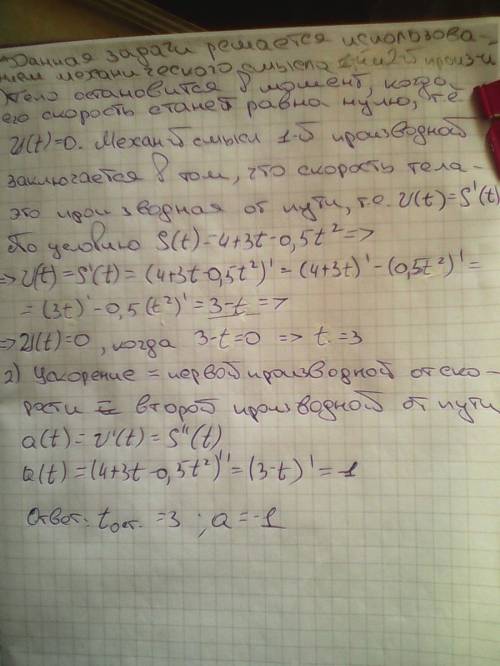 Данная задачи решается использова-
нием механического смысла 1-й и 2-й произ-й
Тело остановится в момент, когда
его скорость станет равна нулю, т.е
V(t)=0. Механ-й смысл 1-й производной
заключается в том, что скорость тела-
это производная от пути, т.е. V(t)=S'(t)
По условию S(t)=4+3t-0,5t²=>
=> V(t)=S'(t)=(4+3t-0,5t²)'=(4+3t)'-(0,5t²)'=
=(3t)'-0,5(t²)'=3-t =>
=> V(t)=0, когда 3-t=0 => t=3
2) Ускорение = первой производной от ско-
рости = второй производной от пути
a(t)=V'(t)=S''(t)
a(t)=(4+3t-0,5t²)''=(3-t)'=-1
Ответ: tост.=3; a=-1